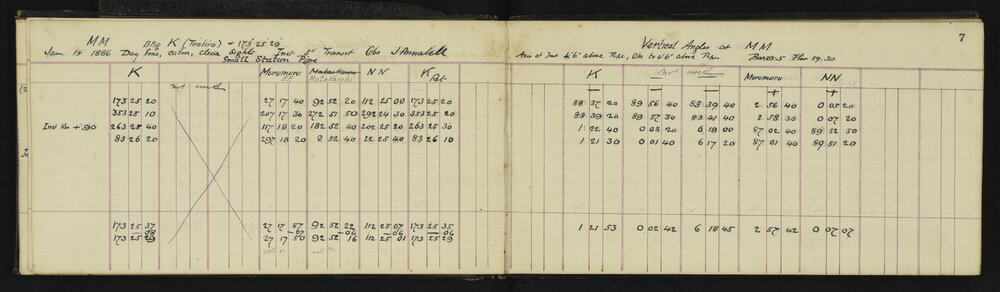 MM BBp K (Tirohia) = 173·25·29
Jan 15 1886 Day fine, calm, clear Sights Inst 5" Transit Obs
Small Station Pipe
K Murumuru NN K
not used
173 25 20 27 17 40 92 52 20 112 25 00 173 25 20
353 25 10 207 17 30 272 51 50 292 24 30 353 25 20
Inst Rn + 90 263 25 40 117 18 20 182 52 40 202 25 20 263 25 30
83 26 20 297 18 20 2 52 40 22 25 40 83 26 10
173 25 37 27 17 57 92 52 22 112 25 07 173 25 35
-08 -07 -06 -06 -06
173 25 29 27 17 50 92 52 16 112 25 01 173 25 29
Vertical Angles at MM 7
Axis of Inst 4'6" above Pipe, Obs to 4'6" above Pipes
K not used Murumuru NN
— — — + +
88 37 20 89 56 40 83 39 40 2 56 40 0 05 20
88 39 20 89 57 30 83 41 40 2 58 30 0 07 20
1 22 40 0 03 20 6 18 00 87 02 40 89 52 50
1 21 30 0 01 40 6 17 20 87 01 40 89 51 20
1 21 53 0 02 42 6 18 45 2 57 42 0 07 07